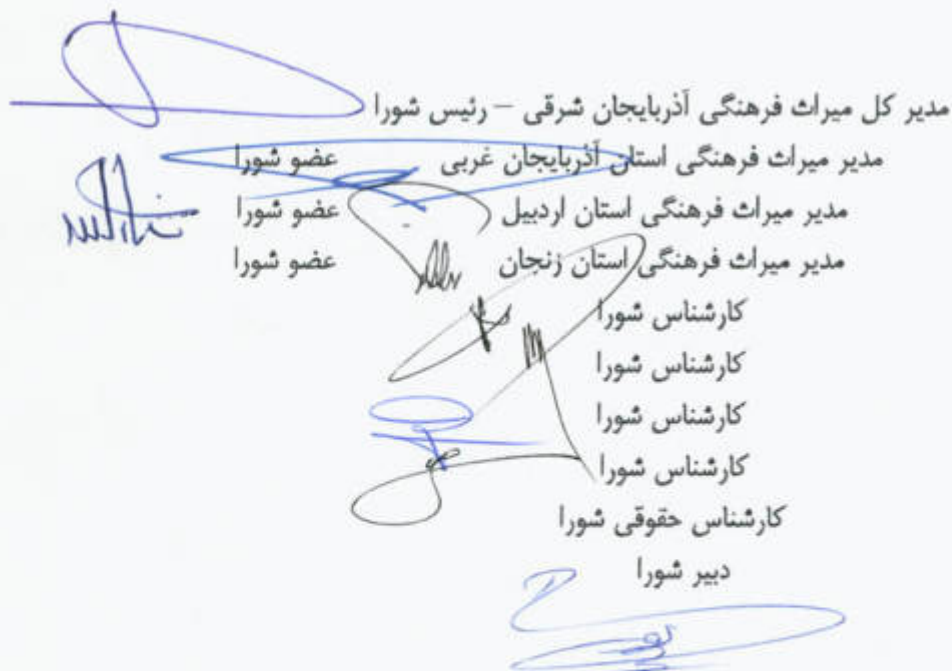 مدیر کل میراث فرهنگی آذربایجان شرقی – رئیس شورا
مدیر میراث فرهنگی استان آذربایجان غربی عضو شورا
مدیر میراث فرهنگی استان اردبیل عضو شورا
مدیر میراث فرهنگی استان زنجان عضو شورا
کارشناس شورا
کارشناس شورا
کارشناس شورا
کارشناس شورا
کارشناس حقوقی شورا
دبیر شورا